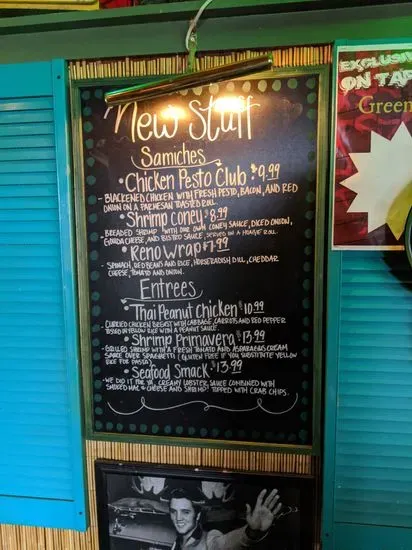 New Stuff
Samiches
• Chicken Pesto Club $9.99
- Blackened chicken with fresh pesto, bacon, and red
onion on a parmesan toasted roll.
• Shrimp Coney $8.99
Breaded shrimp with our own coney sauce, diced onion,
gouda cheese, and bistro sauce, served on a hoagie roll.
• Reno Wrap $7.99
- Spinach, red beans and rice, horseradish dill, cheddar
cheese, tomato and onion.
Entrees
• Thai Peanut Chicken $10.99
chicken breast with cabbage, carrots and red pepper
tossed on yellow rice with a peanut sauce.
• Shrimp Primavera $13.99
- Grilled shrimp with a fresh tomato and asparagus cream
sauce over spaghetti (gluten free if you substitute yellow
rice for pasta)
• Seafood Smack $13.99
- We did it for ya, creamy lobster sauce combined with
smoked mac & cheese and shrimp! Topped with crab chips.
Exclusive
on tap
Green